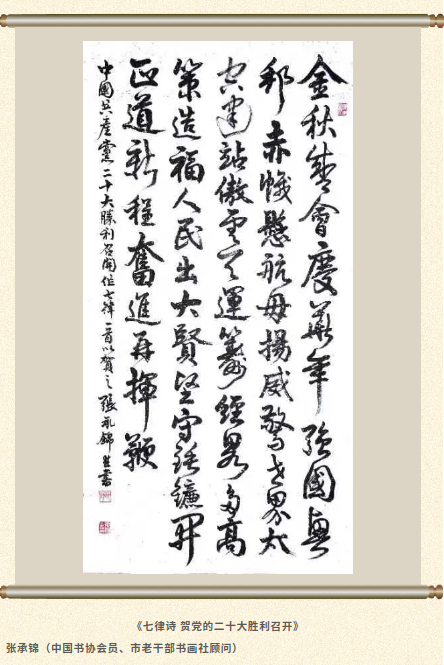 金秋盛會慶華年强國興
邦赤幟懸航母揚威驚世界太
空建站傲雲天運籌經略多高
策造福人民出大賢堅守錘鐮開
正道新程奮進再揮鞭
中國共產黨二十大勝利召開作七律一首以賀之張承錦並書
《七律诗 贺党的二十大胜利召开》
张承锦（中国书协会员、市老干部书画社顾问）